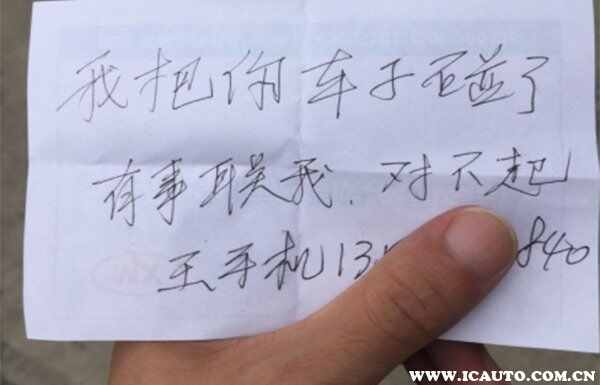 我把你车子碰了
有事联我.对不起
王手机13 840
WWW.ICAUTO.COM.CN